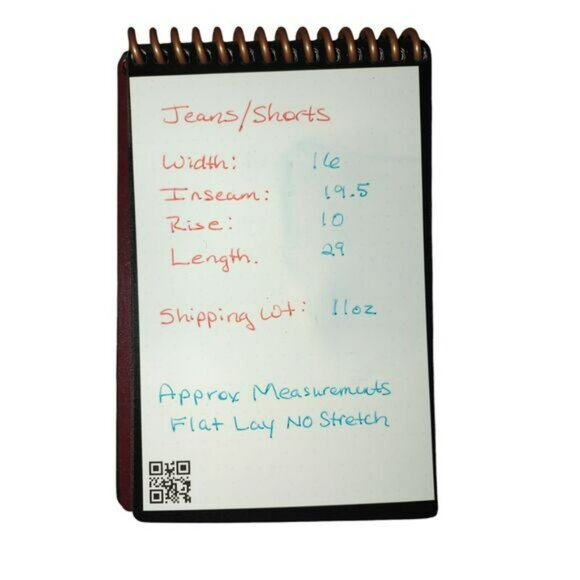 Jeans/Shorts
Width: 16
Inseam: 19.5
Rise: 10
Length. 29
Shipping Wt: 11oz
Approx Measurements
Flat Lay No Stretch